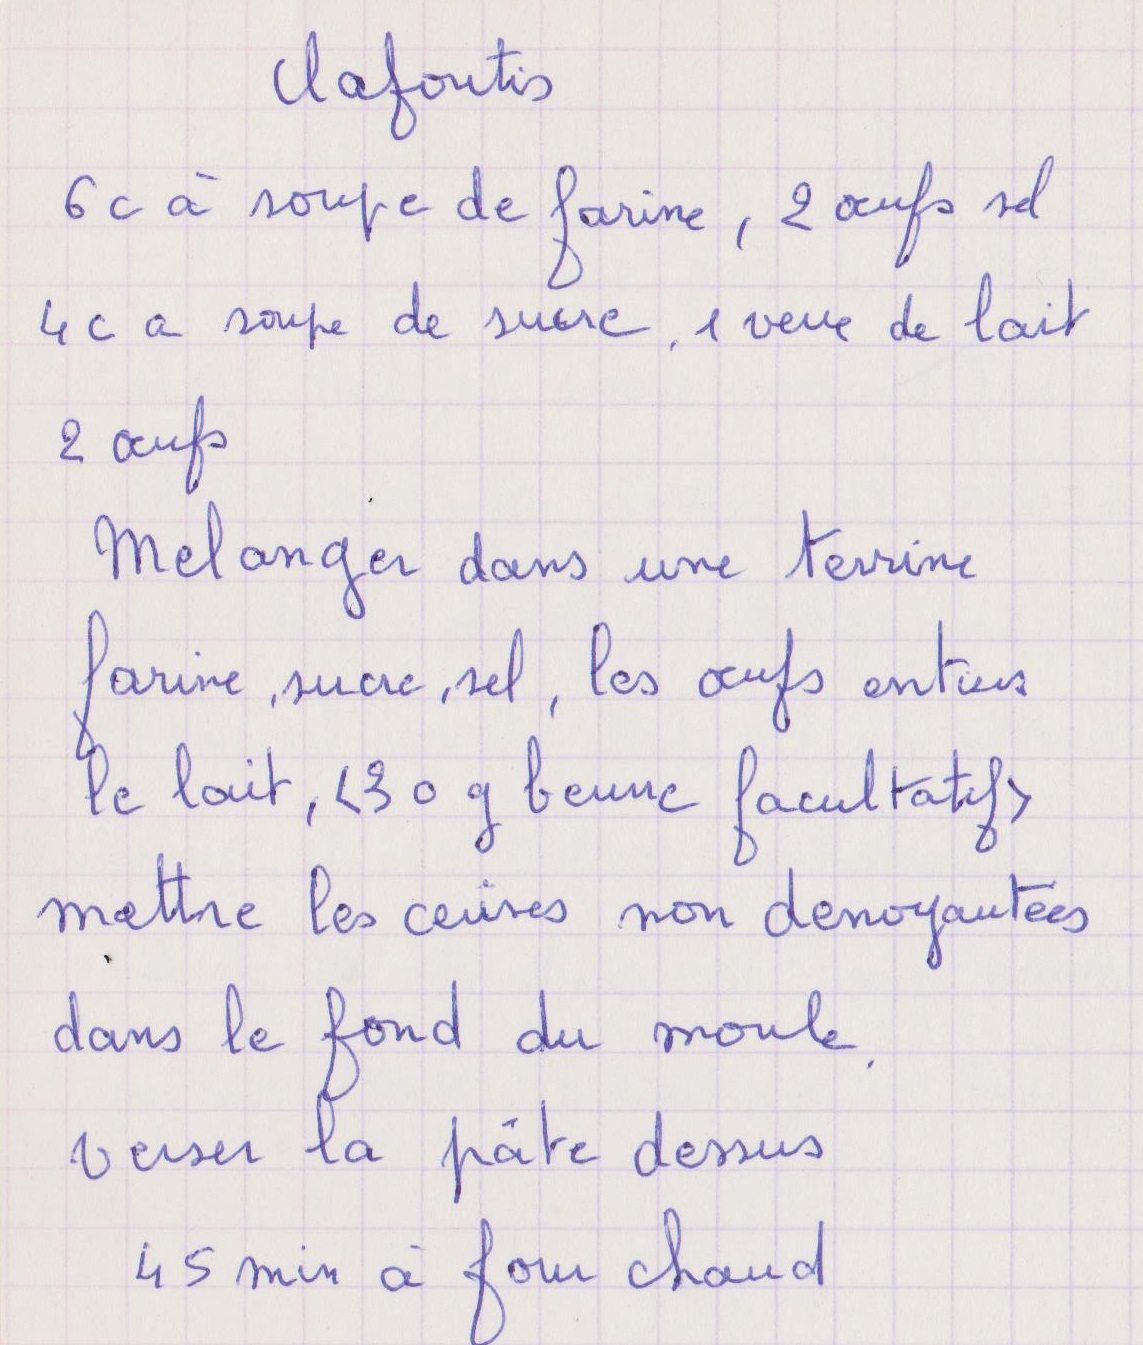 Clafoutis
6 c à soupe de farine, 2 œufs sel
4 c a soupe de sucre, 1 verre de lait
2 œufs
Melanger dans une terrine
farine, sucre, sel, les œufs entiers
le lait, <30 g beurre facultatif>
mettre les cerises non denoyautées
dans le fond du moule.
verser la pâte dessus
45 min à four chaud